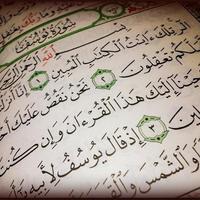 سُورَةُ يُوسُفَ
بِسْمِ ٱللَّهِ ٱلرَّحْمَٰنِ
الٓر تِلْكَ ءَايَٰتُ ٱلْكِتَٰبِ ٱلْمُبِينِ ١ إِنَّآ أَنزَلْ
لَّعَلَّكُمْ تَعْقِلُونَ ٢ نَحْنُ نَقُصُّ عَلَيْكَ أَحْسَنَ
حَيْنَآ إِلَيْكَ هَٰذَا ٱلْقُرْءَانَ وَإِن كُنتَ
لِينَ ٣ إِذْ قَالَ يُوسُفُ لِأَبِيهِ
وَٱلشَّمْسَ وَٱلْقَمَرَ